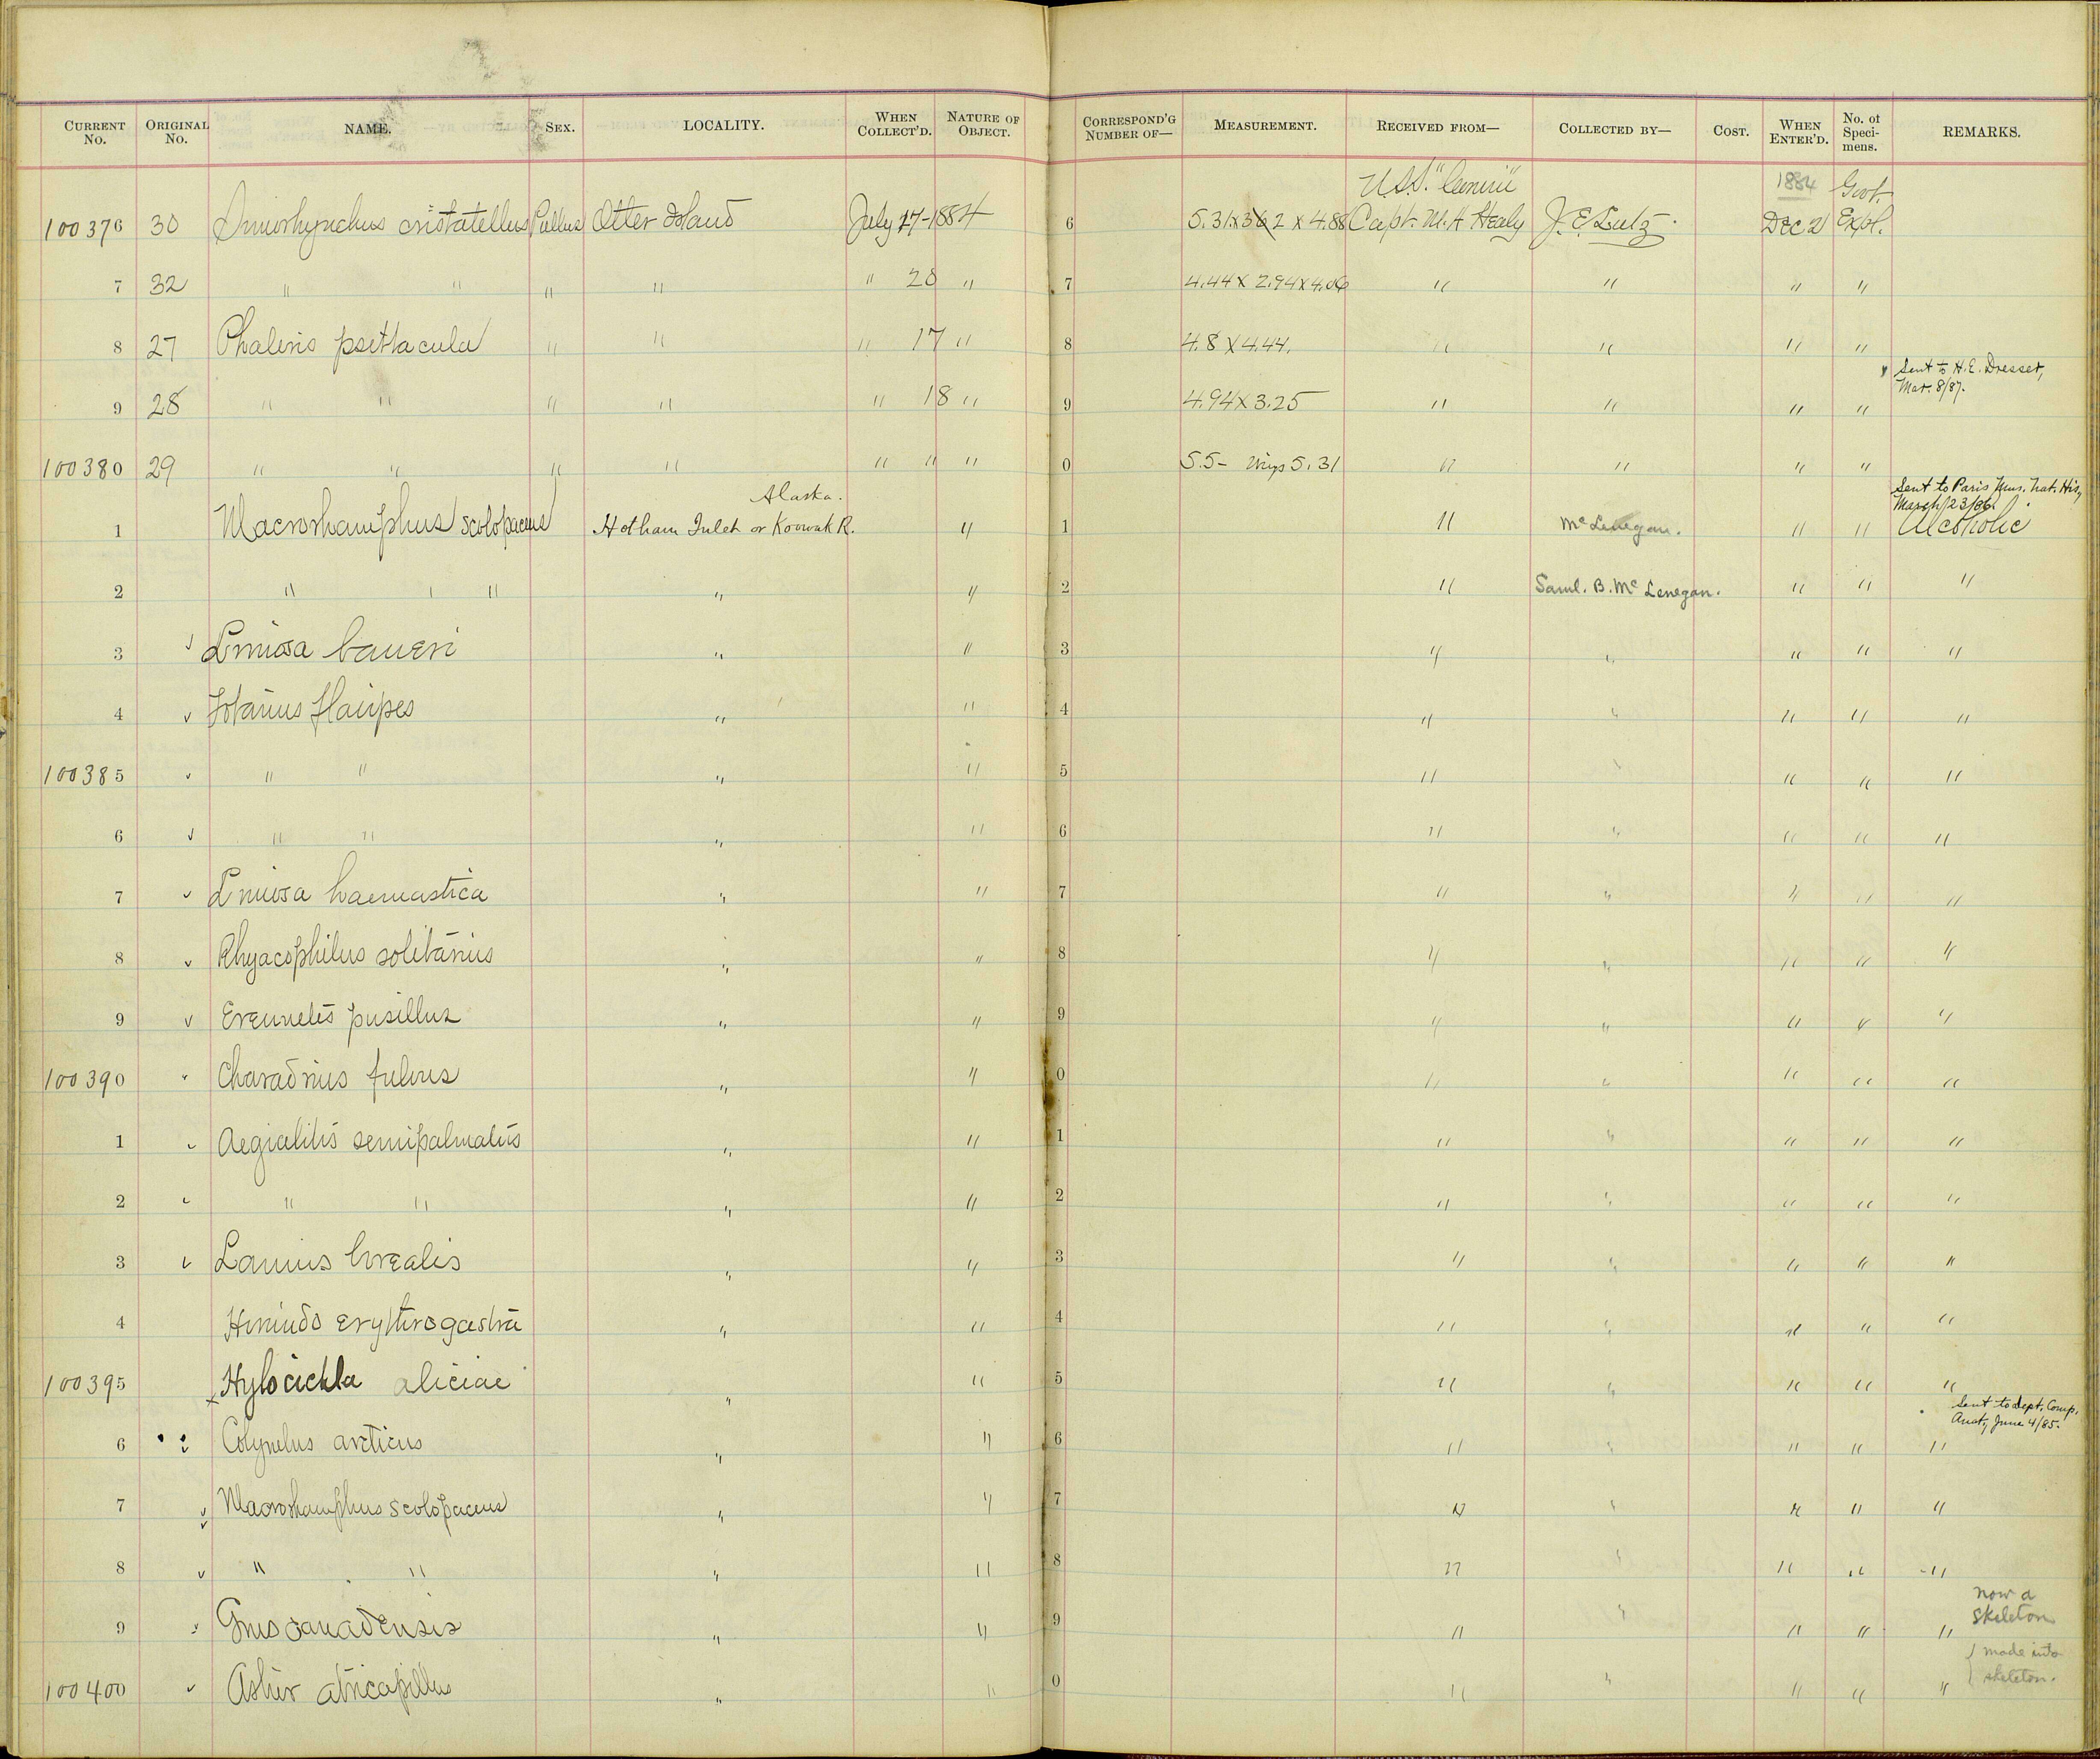 CURRENT No. ORIGINAL No. NAME. SEX. LOCALITY. WHEN COLLECT'D. NATURE OF OBJECT. CORRESPOND'G NUMBER OF— MEASUREMENT. RECEIVED FROM— COLLECTED BY— COST. WHEN ENTER'D. No. of Specimens. REMARKS.
U.S.S. 1884 Govt.
100376 30 cristatellus Pullus Otter Island July 17-1884 6 5.31x3.62 x 4.88 Capt. M.A Healy J.E. Lutz. Dec 2 Expl.
7 32 " " " " " 20 " 7 4.44x 2.94x4.06 " " " "
8 27 Phaleris psittacula " " " 17 " 8 4.8 x 4.44. " " " "
Sent to H.E. Dresser,
Mar. 8/87.
9 28 " " " " " 18 " 9 4.94x3.25 " " " "
100380 29 " " " " " " " 0 5.5- Wings 5.31 " " " "
Alaska. Sent to Paris Mus. Nat. His,
March/23/86.
1 Macrorhamphus scolopaceus Hotham Inlet or Koowak R. " 1 " McLenegan. " " Alcoholic
2 " " " " 2 " Saml. B. McLenegan. " " "
3 Limosa baueri " " 3 " " " " "
4 Totanus flavipes " " 4 " " " " "
100385 " " " " 5 " " " " "
6 " " " " 6 " " " " "
7 Limosa haemastica " " 7 " " " " "
8 Rhyacophilus solitarius " " 8 " " " " "
9 Ereunetes pusillus " " 9 " " " " "
100390 Charadrius fulvus " " 0 " " " " "
1 Aegialitis semipalmatus " " 1 " " " " "
2 " " " " 2 " " " " "
3 Lanius borealis " " 3 " " " " "
4 Hirundo erythrogastra " " 4 " " " " "
100395 Hylocichla aliciae " " 5 " " " " "
Sent to dept. Comp.
Anat, June 4/85.
6 Colymbus arcticus " " 6 " " " " "
7 Macrorhamphus scolopaceus " " 7 " " " " "
8 " " " " 8 " " " " "
now a
skeleton
9 Grus canadensis " " 9 " " " " "
made into
skeleton.
100400 Astur atricapillus " " 0 " " " " "